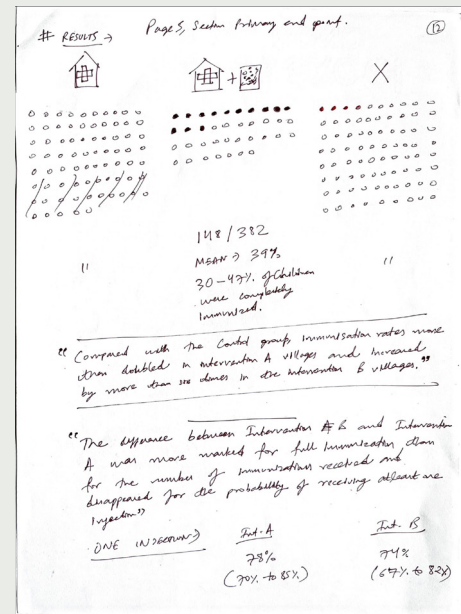 # RESULTS → Page 5, Section Primary end point.
12
+
X
148 / 382
MEAN → 39%
30-47% of Children
were completely
Immunized.
"
"
"Compared with the Control group, immunisation rates more
than doubled in intervention A villages and increased
by more than six times in the intervention B villages."
"The difference between Intervention B and Intervention
A was more marked for full Immunization than
for the number of immunizations received and
disappeared for the probability of receiving atleast one
Injection"
ONE INJECTION → Int. A Int. B
78% 74%
(70% to 85%) (67% to 82%)